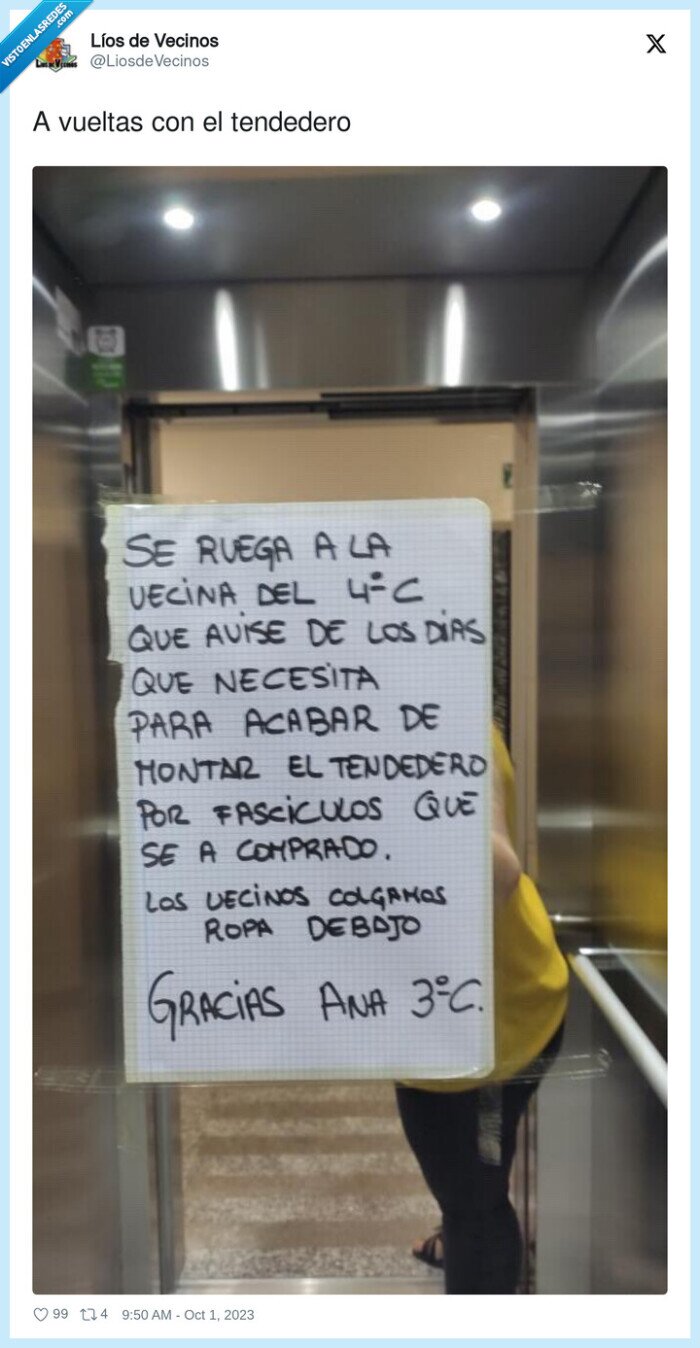 VISTOENLASREDES
.com
Líos de Vecinos
@LiosdeVecinos
A vueltas con el tendedero
SE RUEGA A LA
VECINA DEL 4º C
QUE AVISE DE LOS DÍAS
QUE NECESITA
PARA ACABAR DE
MONTAR EL TENDEDERO
POR FASCÍCULOS QUE
SE A COMPRADO.
LOS VECINOS COLGAMOS
ROPA DEBAJO
GRACIAS ANA 3ºC.
99 4 9:50 AM - Oct 1, 2023